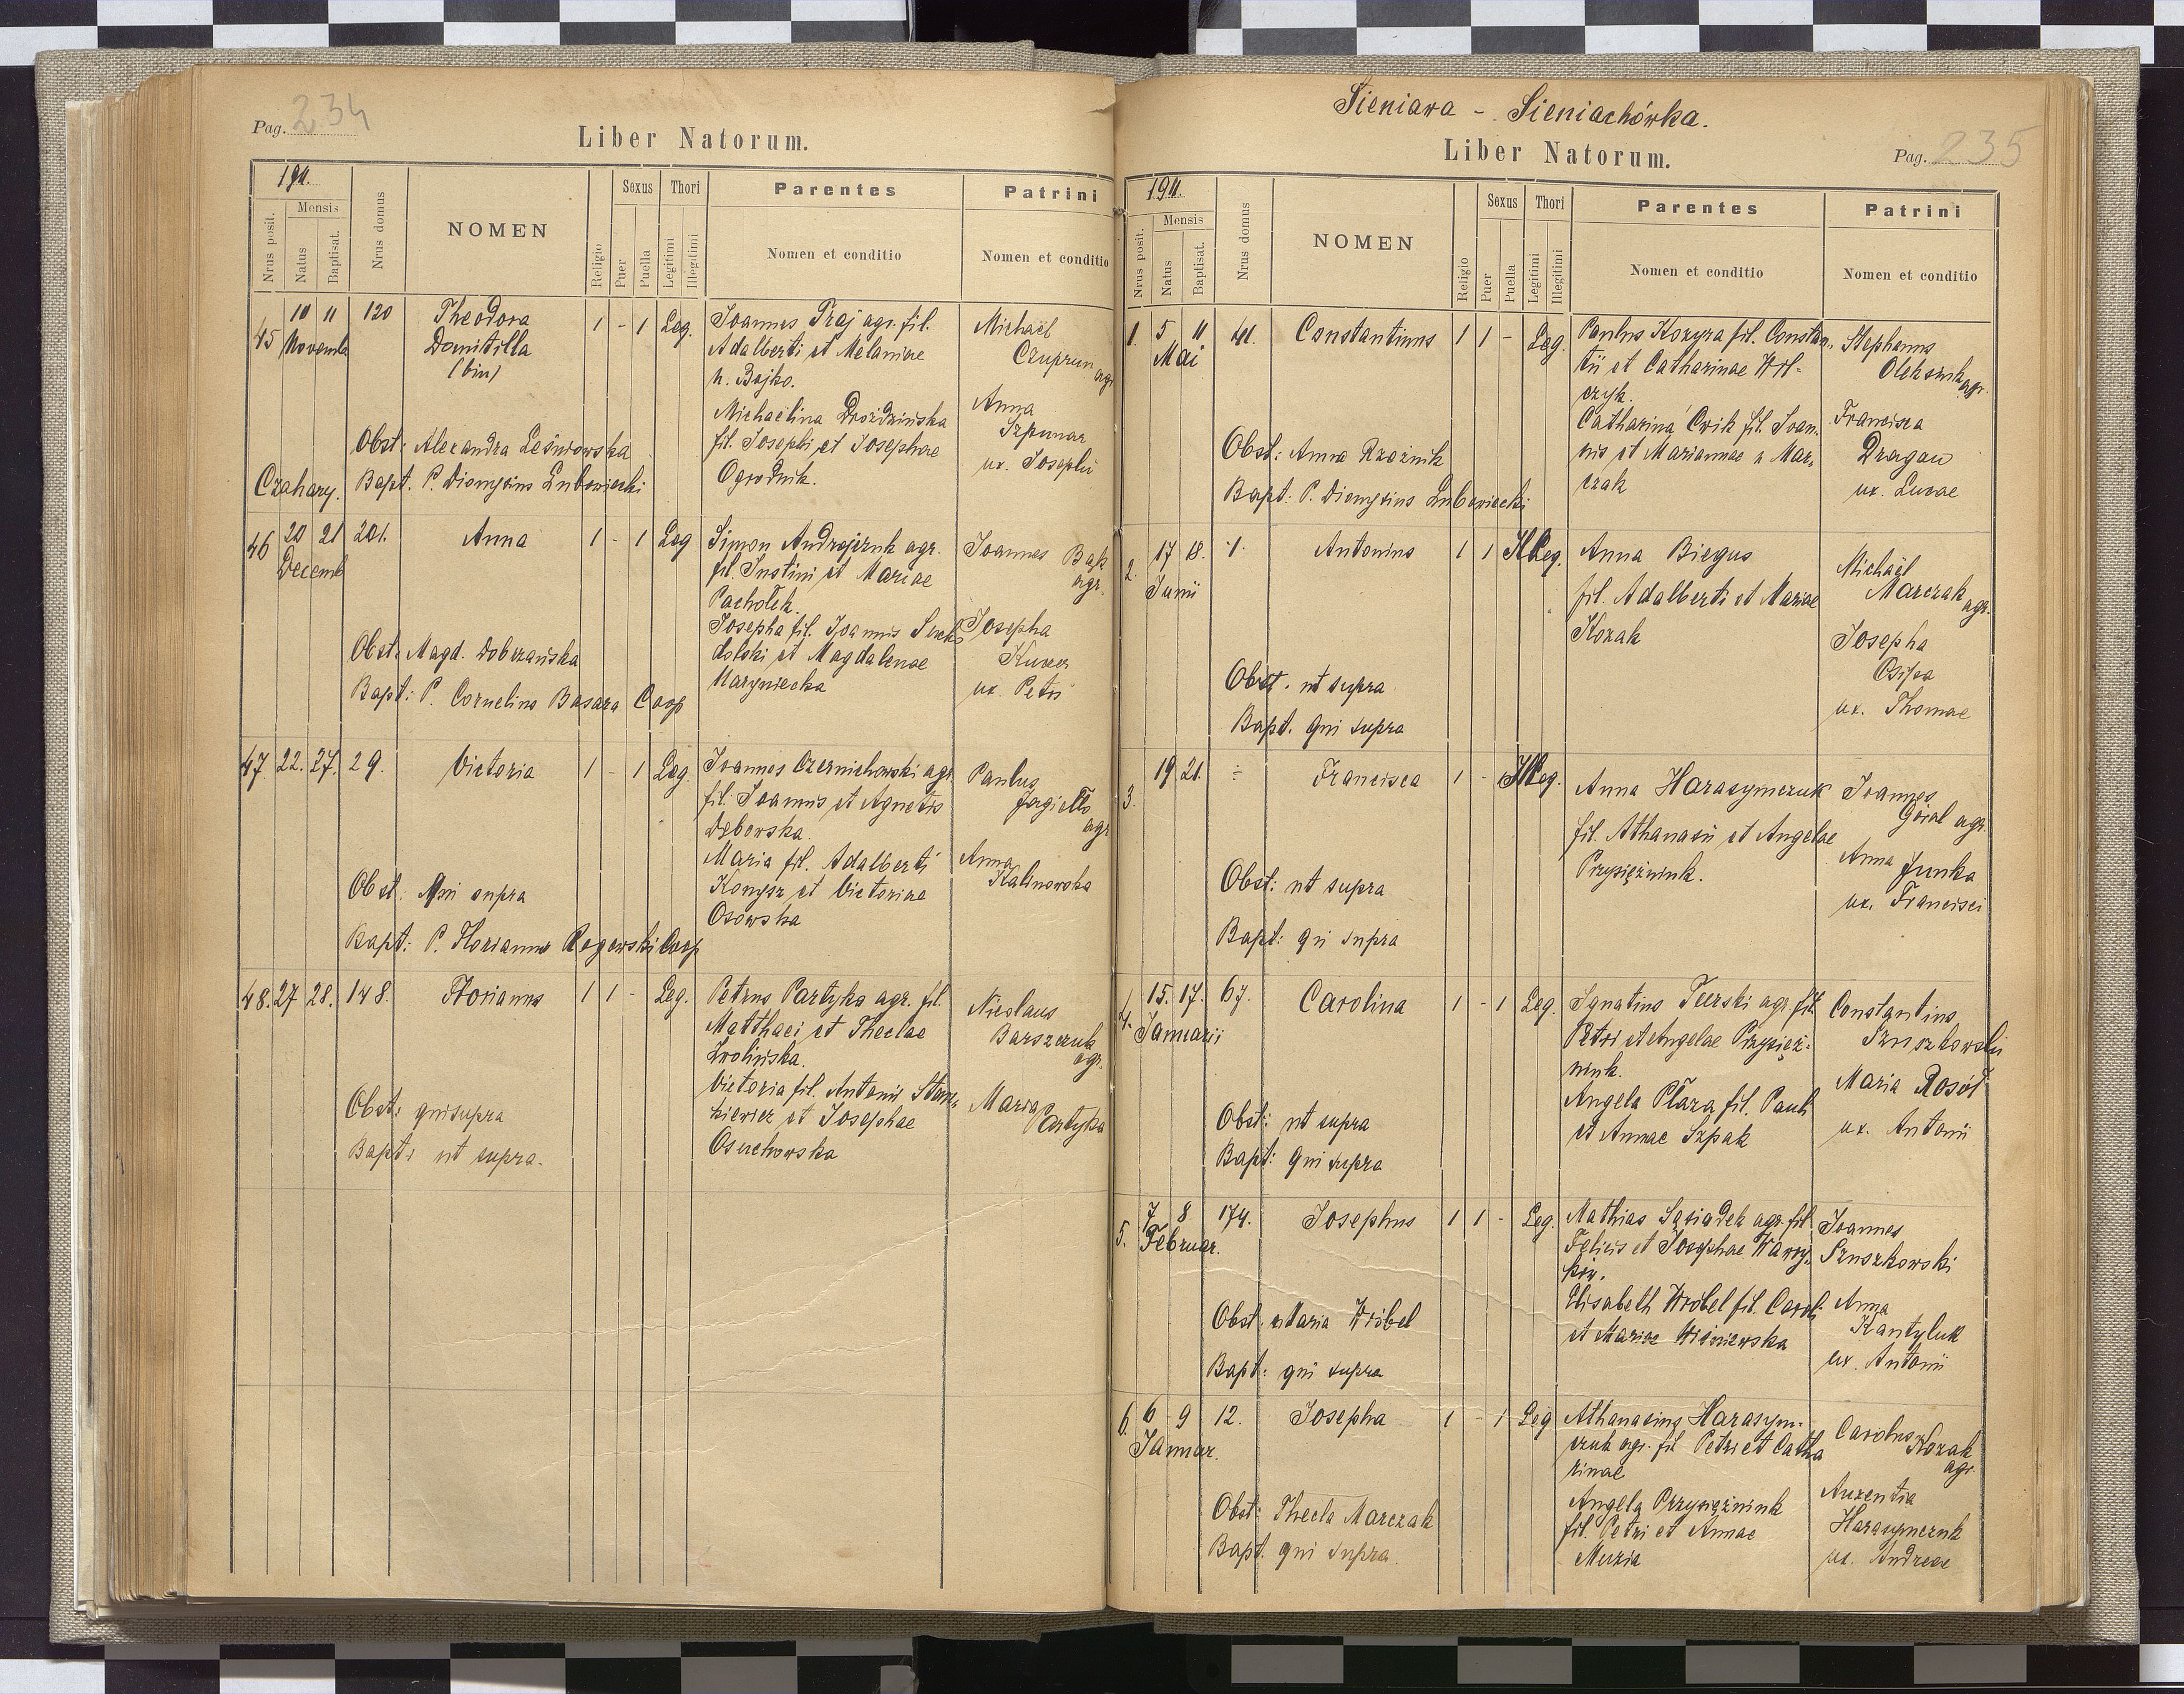 Pag. 234
Liber Natorum.
1911.
Nrus posit.
Mensis
Natus
Baptisat.
Nrus domus
NOMEN
Religio
Sexus
Puer
Puella
Thori
Legitimi
Illegitimi
Parentes
Nomen et conditio
Patrini
Nomen et conditio
45
10 11
Novemb
120
Theodora
Domitilla
(bin)
1 - 1 Leg.
Joannes Praj agr. fil.
Adalberti et Melaniae
n. Bojko.
Michaëlina Droździńska
fil. Josephi et Josephae
Ogrodnik.
Michaël
Czuprun
agr.
Anna
Szpunar
ux. Josephi
Obst: Alexandra Leśniowska
Czahary. Bapt. P. Dionysius Lubowiecki
46
20 21
Decemb
201.
Anna
1 - 1 Leg
Simon Andrejczuk agr.
fil. Justini et Mariae
Pachołek.
Josepha fil. Joannis Sucho
dolski et Magdalenae
Maryniecka
Joannes Bąk
agr.
Josepha
ux. Petri
Obst: Magd. Dobrzańska
Bapt: P. Cornelius Basara Coop
47 22. 27. 29.
Victoria
1 - 1 Leg.
Joannes Czernichowski agr.
fil. Joannis et Agnetis
Dębowska.
Maria fil. Adalberti
Konysz et Victoriae
Osowska
Paulus
Jagiełło
agr
Anna
Kalinowska
Obst: Qui supra
Bapt: P. Florianus Rogowski Coop
48. 27 28. 148.
Florianus
1 1 - Leg.
Petrus Partyka agr. fil.
Matthaei et Theclae
Zwolińska.
Victoria fil. Antonii Stan-
kiewicz et Josephae
Osuchowska
Nicolaus
Barszczuk
agr.
Maria
Partyka
Obst: qui supra
Bapt: ut supra.
Sieniawa - Sieniachówka.
Liber Natorum.
Pag. 235
1911.
Nrus posit.
Mensis
Natus
Baptisat.
Nrus domus
NOMEN
Religio
Sexus
Puer
Puella
Thori
Legitimi
Illegitimi
Parentes
Nomen et conditio
Patrini
Nomen et conditio
1. 5 11
Mai
41.
Constantinus
1 1 - Leg.
Paulus Kozyra fil. Constan-
tii et Catharinae Wil-
czyk.
Catharina Ćwik fil. Joan-
nis et Mariannae n Mar-
czak
Stephanus
Oleksiuk
agr.
Francisca
Dragan
ux. Lucae
Obst: Anna Rzeźnik
Bapt: P. Dionysius Lubowiecki
2. 17 18.
Junii
1.
Antonius
1 1 Illeg.
Anna Biegus
fil. Adalberti et Mariae
Kozak
Michaël
Marczak
agr.
Josepha
Osipa
ux. Thomae
Obst. ut supra
Bapt. qui supra
3. 19 21.
÷
Francisca
1 - Illeg.
Anna Harasymczuk
fil. Athanasii et Angelae
Przysiężniuk.
Joannes
Góral agr.
Anna Junka
ux. Francisci
Obst: ut supra
Bapt: qui supra
4. 15. 17.
Januarii
67.
Carolina
1 - 1 Leg.
Ignatius Turski agr. fil.
Petri et Angelae Przysięż-
niuk.
Angela Płaza fil. Pauli
et Annae Szpak
Constantius
Sznszkowski
Maria Rosół
ux. Antonii
Obst: ut supra
Bapt: qui supra
5. 7 8
Februar.
174.
Josephus
1 1 - Leg.
Mathias Sąsiadek agr. fil.
Felicis et Josephae Wawry-
ków.
Elisabeth Wróbel fil. Caroli
et Mariae Wiśniewska
Joannes
Sznszkowski
Anna
Kantyluk
ux. Antonii
Obst: Maria Wróbel
Bapt: qui supra
6. 6 9
Januar.
12.
Josepha
1 - 1 Leg
Athanasius Harasym-
czuk agr. fil Petri et Catha
rinae
Angela Przysiężniuk
fil. Petri et Annae
Muzia
Carolus Kozak
agr.
Auxentia
Harasymczuk
ux. Andreae
Obst: Thecla Marczak
Bapt. qui supra.